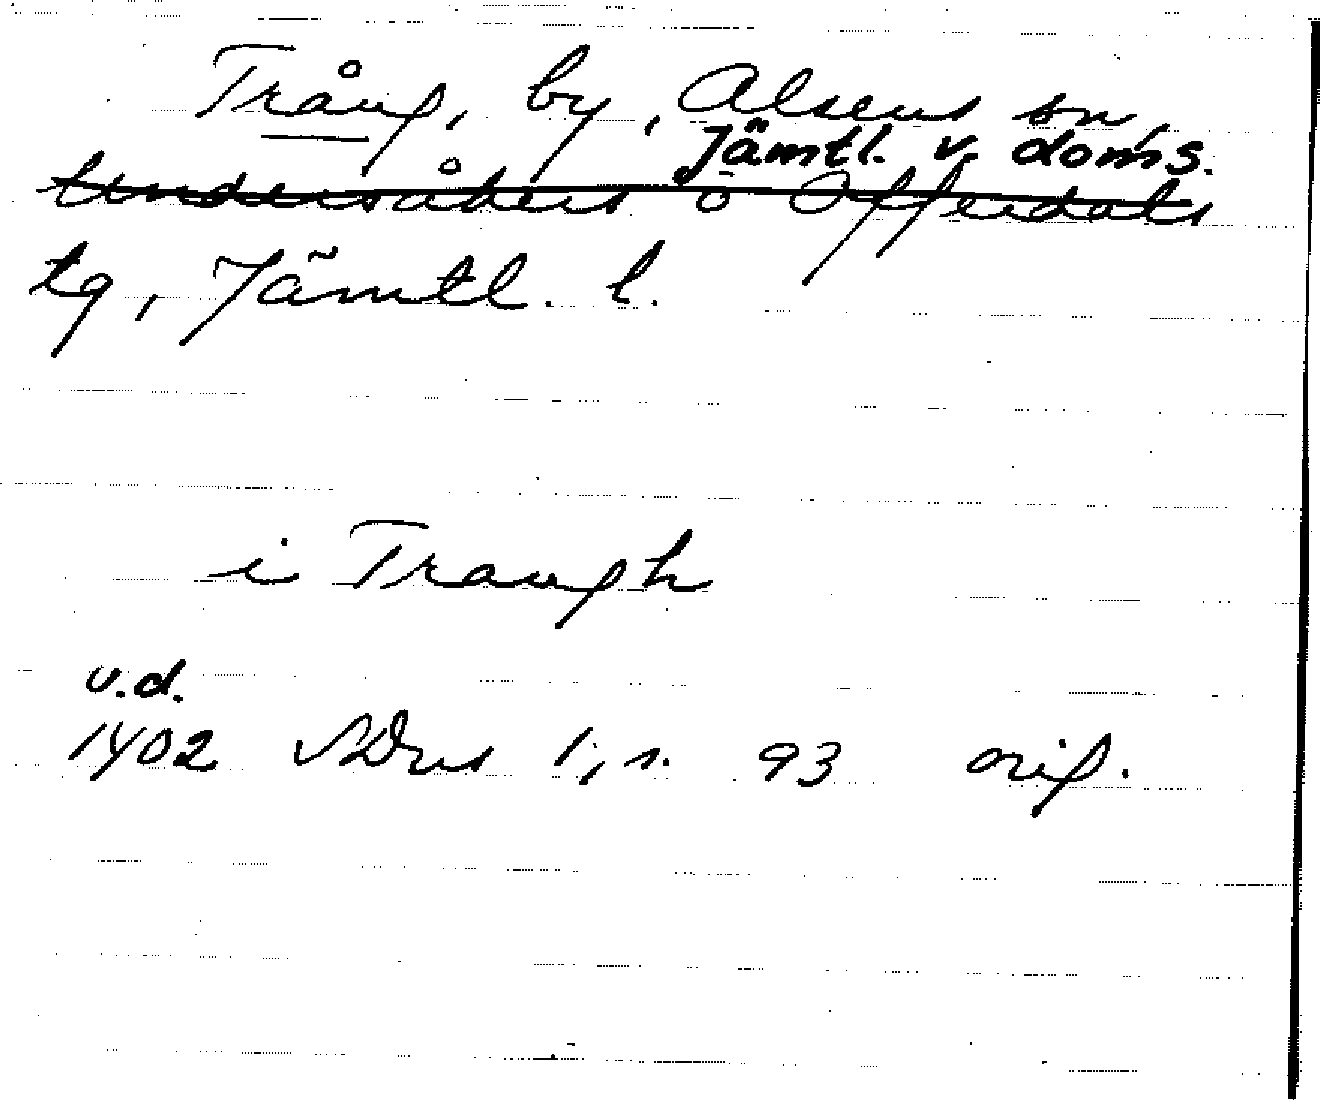 Trång, by, Alsens sn,
Jämtl. v. doms.
Undersåkers o Offerdals
tg, Jämtl. l.
i Trangh
u.d.
1402 SDns 1, s. 93 orig.